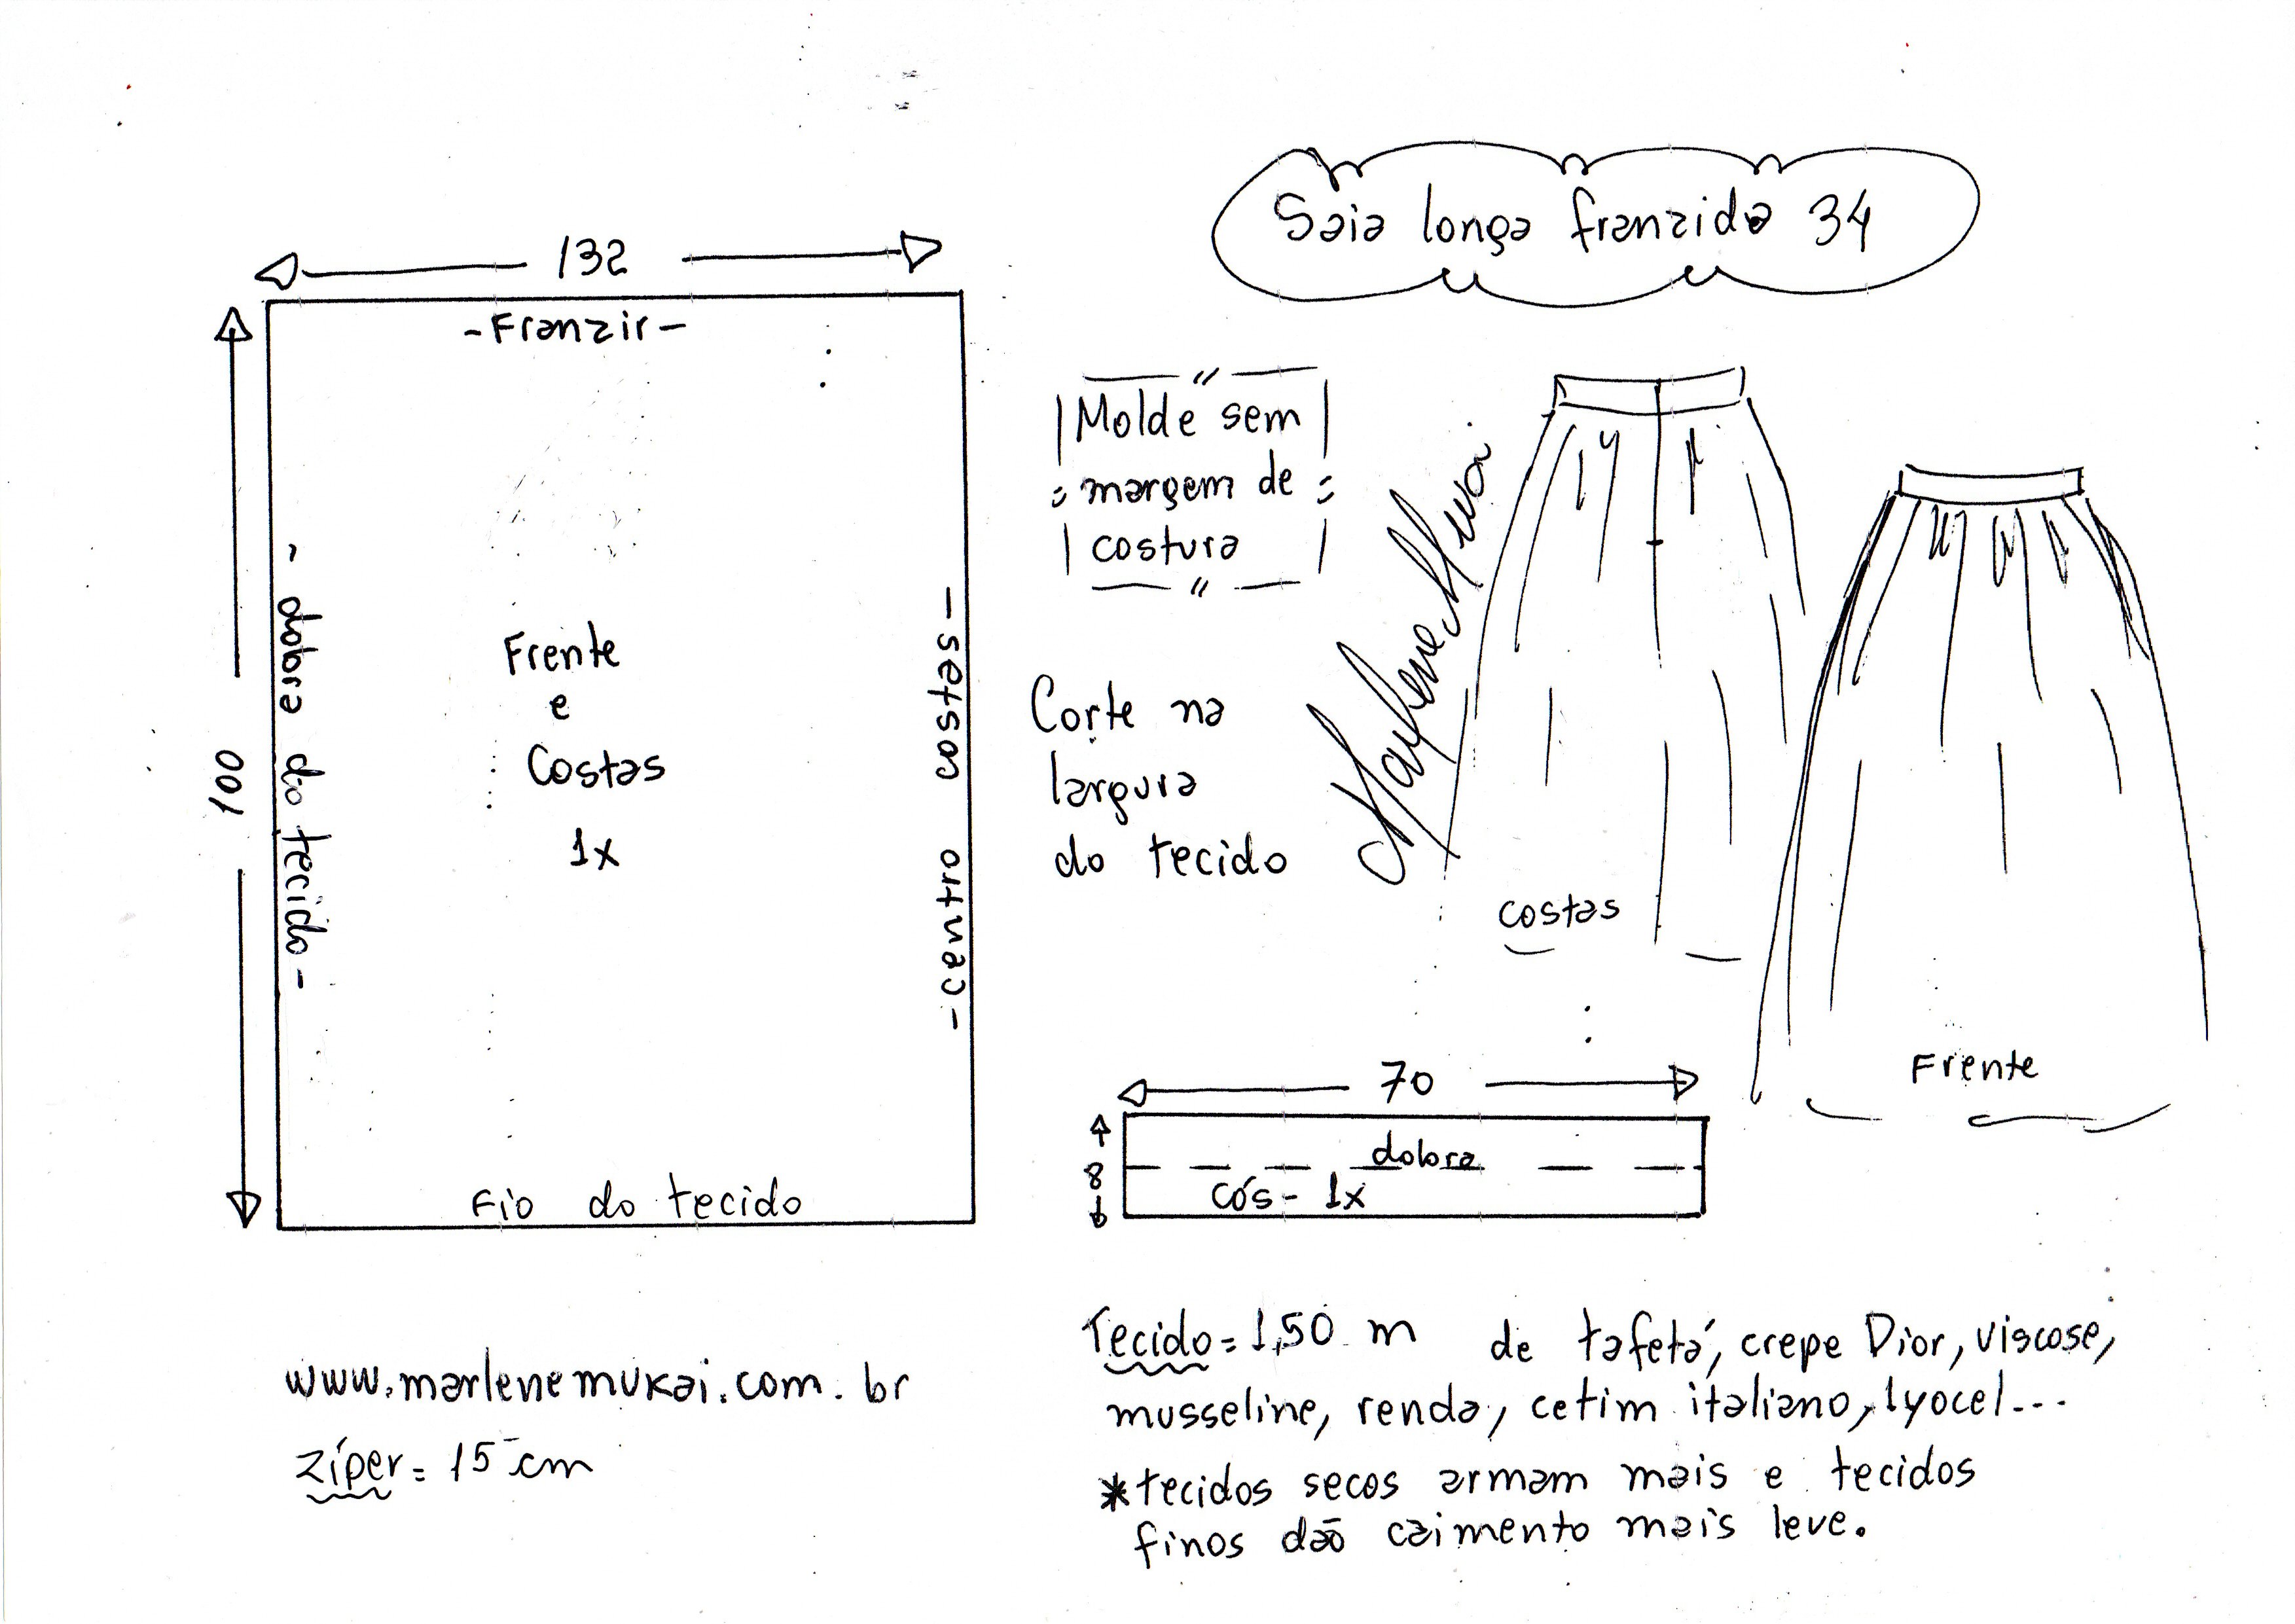 Saia longa franzida 34
132
-Franzir-
100
- dobra do tecido-
Frente
e
Costas
1x
-centro costas-
Fio do tecido
Molde sem
margem de
costura
Corte na
largura
do tecido
Marlene Mukai
costas
Frente
70
8
dobra
cós- 1x
www.marlenemukai.com.br
zíper= 15 cm
Tecido= 1,50 m de tafetá, crepe Dior, viscose,
musseline, renda, cetim italiano, lyocel...
*tecidos secos armam mais e tecidos
finos dão caimento mais leve.